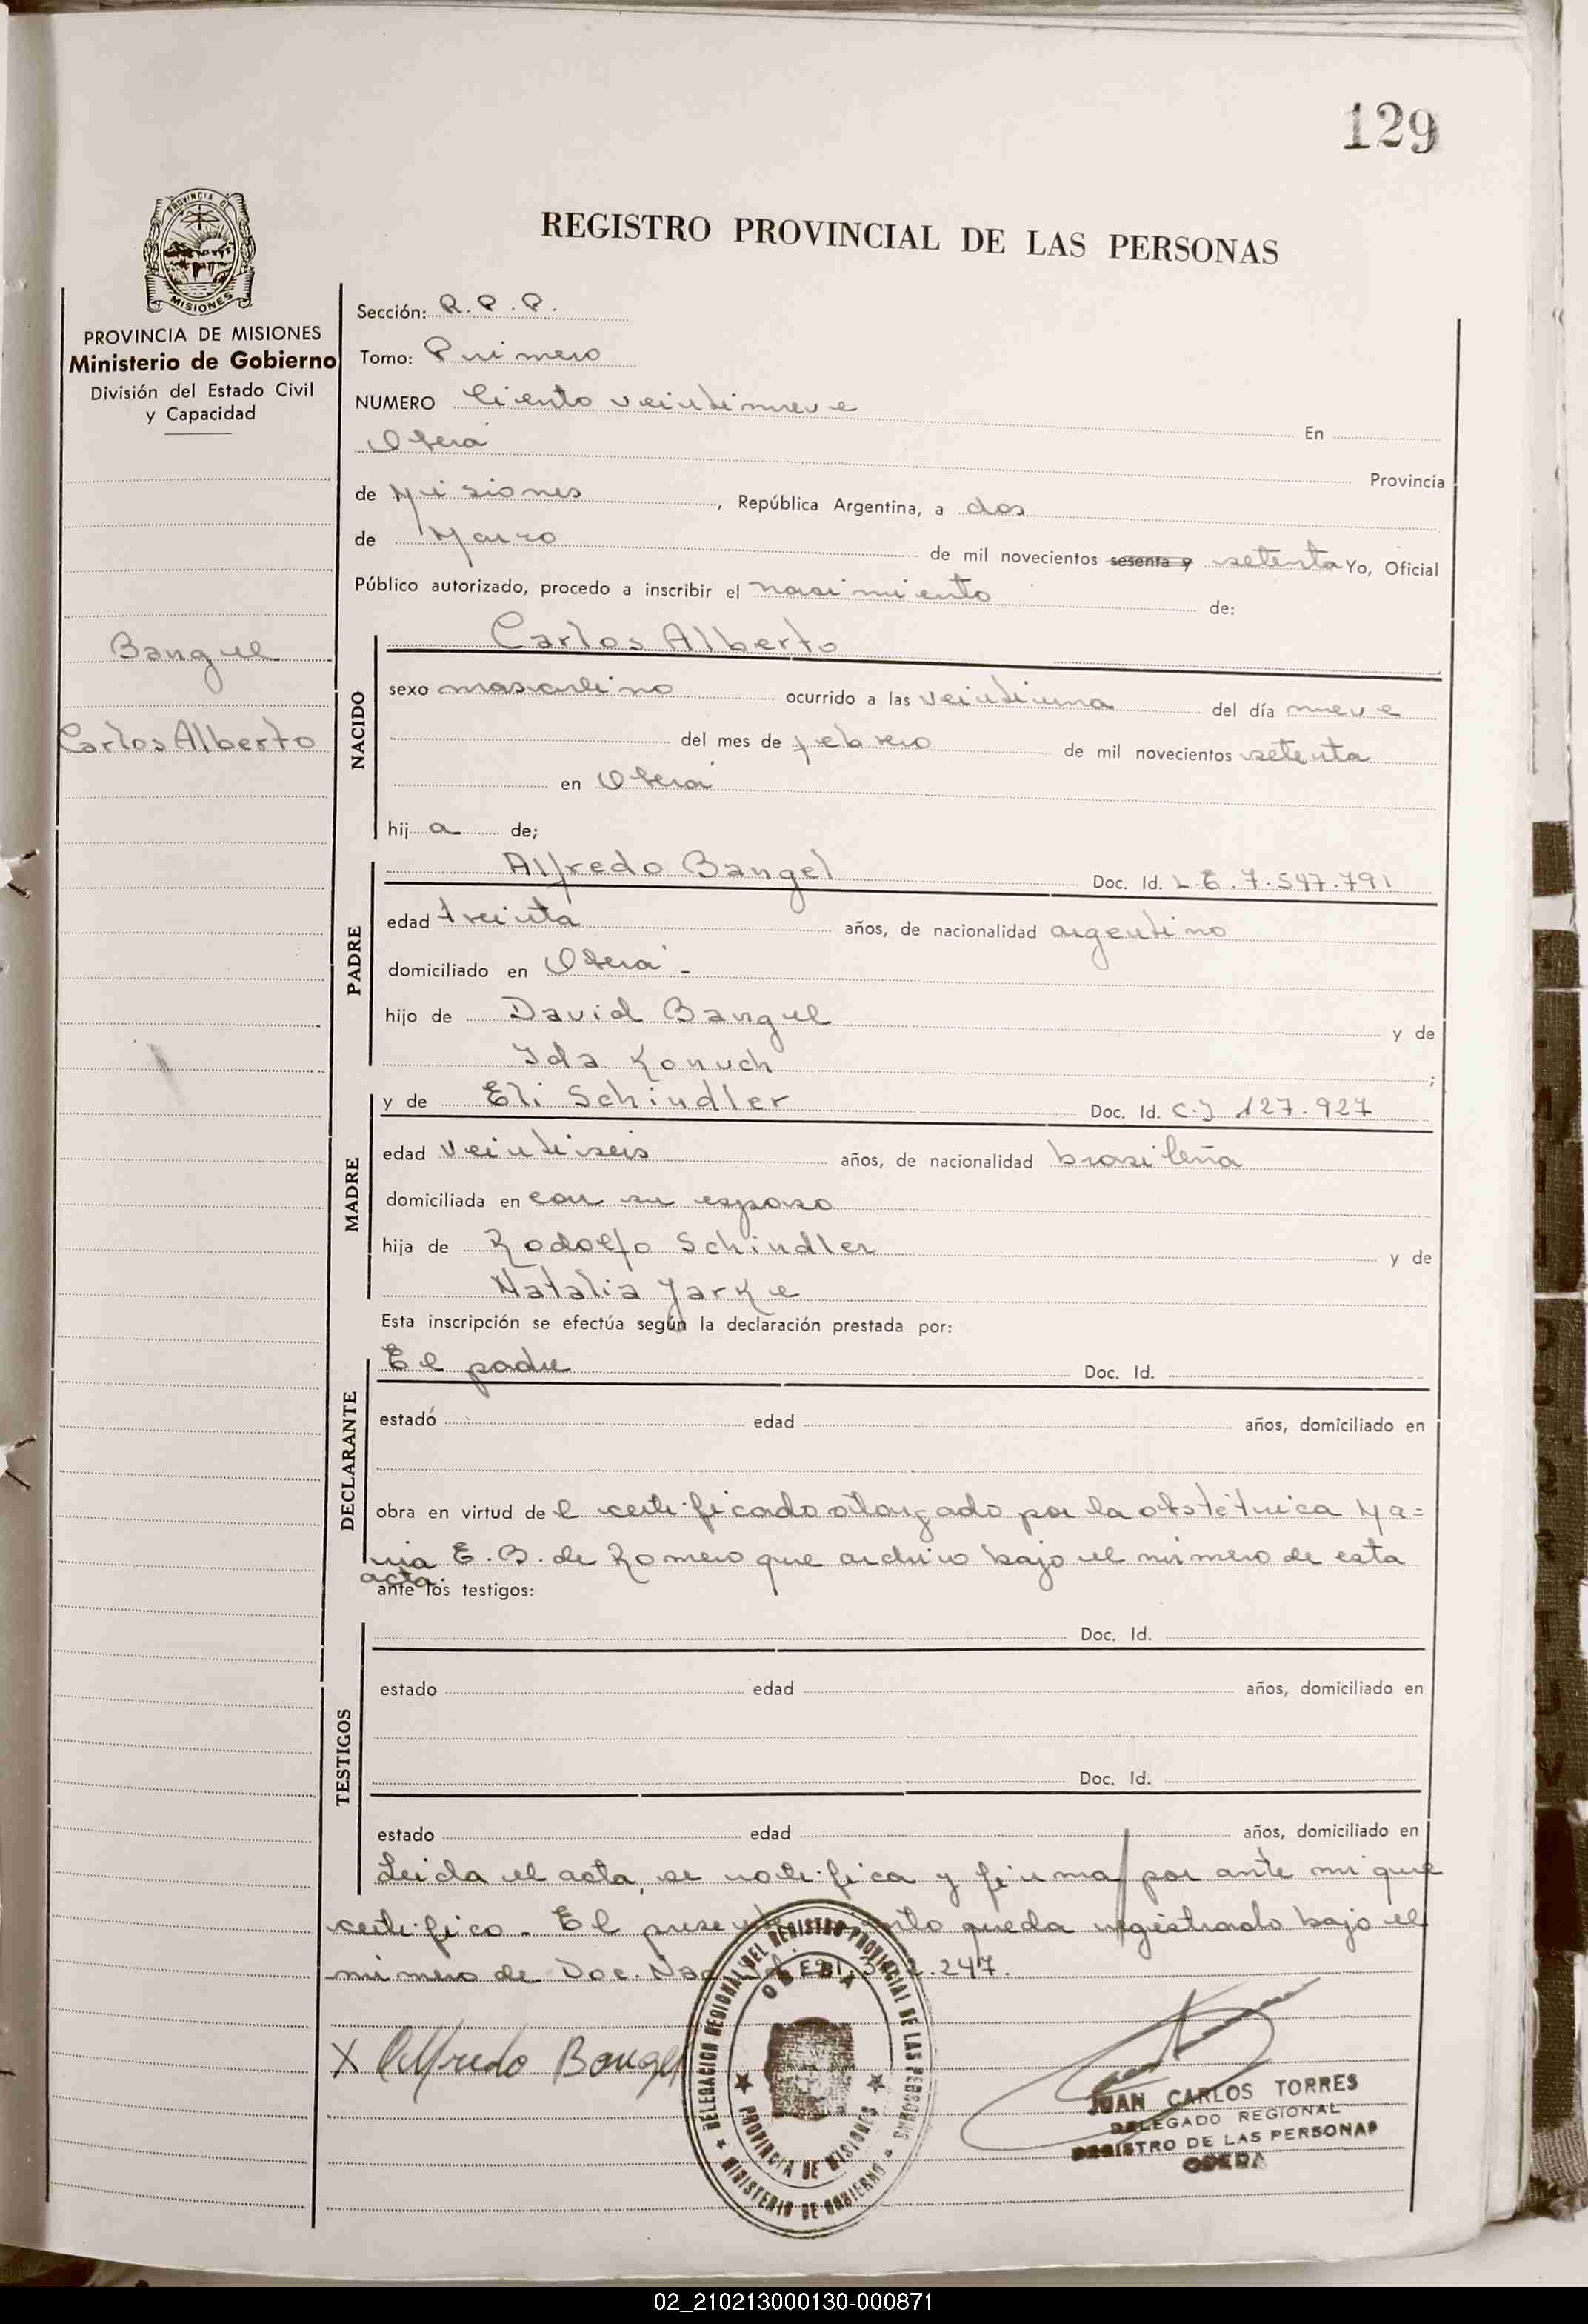 129
PROVINCIA DE
MISIONES
PROVINCIA DE MISIONES
Ministerio de Gobierno
División del Estado Civil
y Capacidad
Bangel
Carlos Alberto
REGISTRO PROVINCIAL DE LAS PERSONAS
Sección: R.P.P.
Tomo: Primero
NUMERO Ciento veintinueve
En
Oberá
Provincia
de Misiones, República Argentina, a dos
de Marzo de mil novecientos sesenta y setenta Yo, Oficial
Público autorizado, procedo a inscribir el nacimiento de:
NACIDO
Carlos Alberto
sexo masculino ocurrido a las veintiuna del día nueve
del mes de febrero de mil novecientos setenta
en Oberá
hij a de;
PADRE
Alfredo Bangel Doc. Id. L.E. 7.547.791
edad treinta años, de nacionalidad argentino
domiciliado en Oberá -
hijo de David Bangel y de
Ida Konuch ;
MADRE
y de Eli Schindler Doc. Id. C.I 127.927
edad veintiseis años, de nacionalidad brasileña
domiciliada en con su esposo
hija de Rodolfo Schindler y de
Natalia Jarke
Esta inscripción se efectúa según la declaración prestada por:
DECLARANTE
El padre Doc. Id.
estado edad años, domiciliado en
obra en virtud de l certificado otorgado por la obstétrica Ma=
ria E. B. de Romero que archivo bajo el número de esta
acta.
ante los testigos:
TESTIGOS
Doc. Id.
estado edad años, domiciliado en
Doc. Id.
estado edad años, domiciliado en
Leida el acta, se notifica y firma por ante mi que
certifico - El presente queda registrado bajo el
número de Doc. Nac. .247.
X Alfredo Bangel
DELEGACION REGIONAL DEL REGISTRO PROVINCIAL DE LAS PERSONAS
OBERA
PROVINCIA DE MISIONES
MINISTERIO DE GOBIERNO
JUAN CARLOS TORRES
DELEGADO REGIONAL
REGISTRO DE LAS PERSONAS
OBERA
02_210213000130-000871